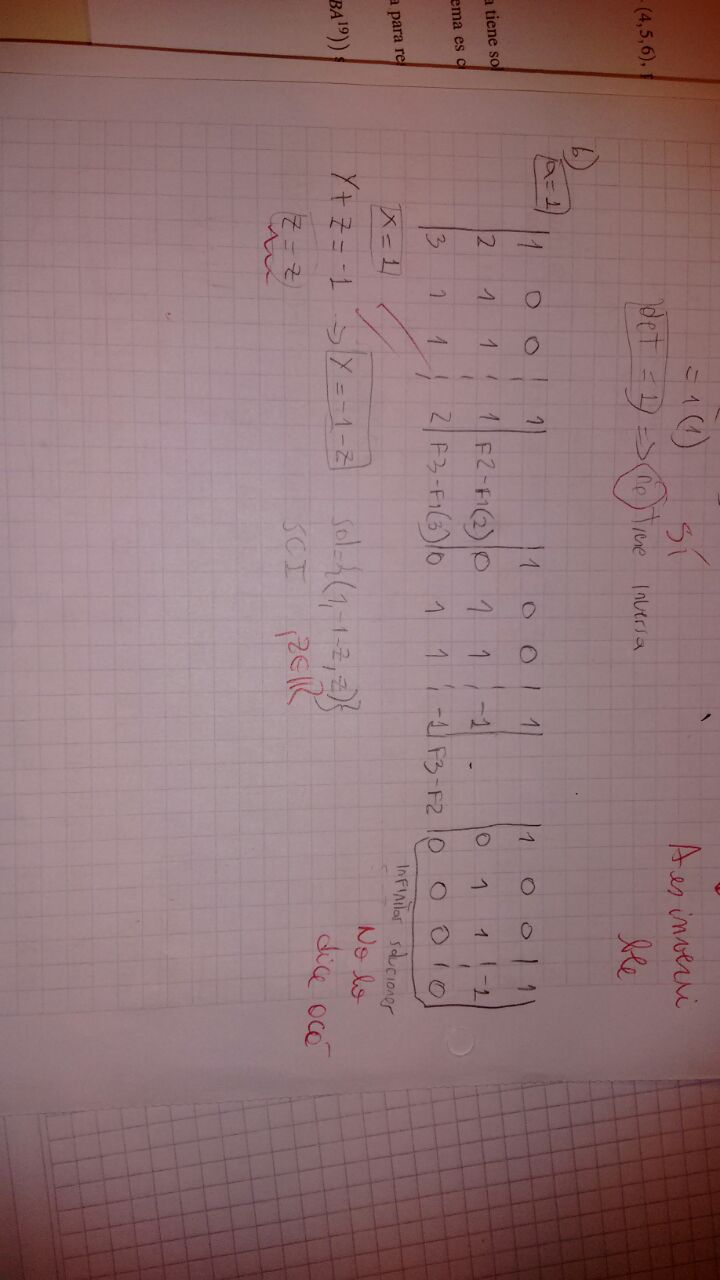 (4,5,6),
a tiene so
ema es c
a para re
BA¹⁹))
= 1(1)
Sí
det = 1 => no tiene inversa
A es inverti
ble
b)
a=1
1 0 0 | 1
2 1 1 | 1 F2-F1(2)
3 1 1 | 2 F3-F1(3)
1 0 0 | 1
0 1 1 | -1
0 1 1 | -1 F3-F2
1 0 0 | 1
0 1 1 | -1
0 0 0 | 0
infinitas soluciones
No lo
dice
x = 1
y + z = -1 => y = -1-z
sol={(1,-1-z,z)}
z = z
SCI
,z∈ℝ